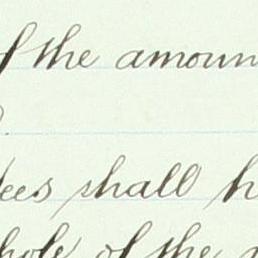 f the amoun
ees shall h
hole of the